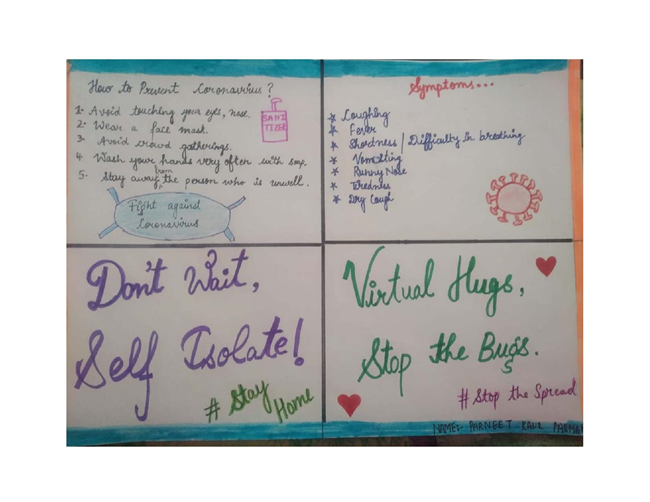 How to Prevent Coronavirus?
1. Avoid touching your eyes, nose.
2. Wear a face mask.
3. Avoid crowd gatherings.
4. Wash your hands very often with soap.
5. Stay away from the person who is unwell.
SANI
TIZER
Fight against
Coronavirus
Symptoms...
Coughing
Fever
Shortness / Difficulty in breathing
Vomitting
Runny Nose
Tiredness
Dry Cough
Don't Wait,
Self Isolate!
# Stay
Home
Virtual Hugs,
Stop the Bugs.
# Stop the Spread
NAME:- PARNEET KAUR PARMAR